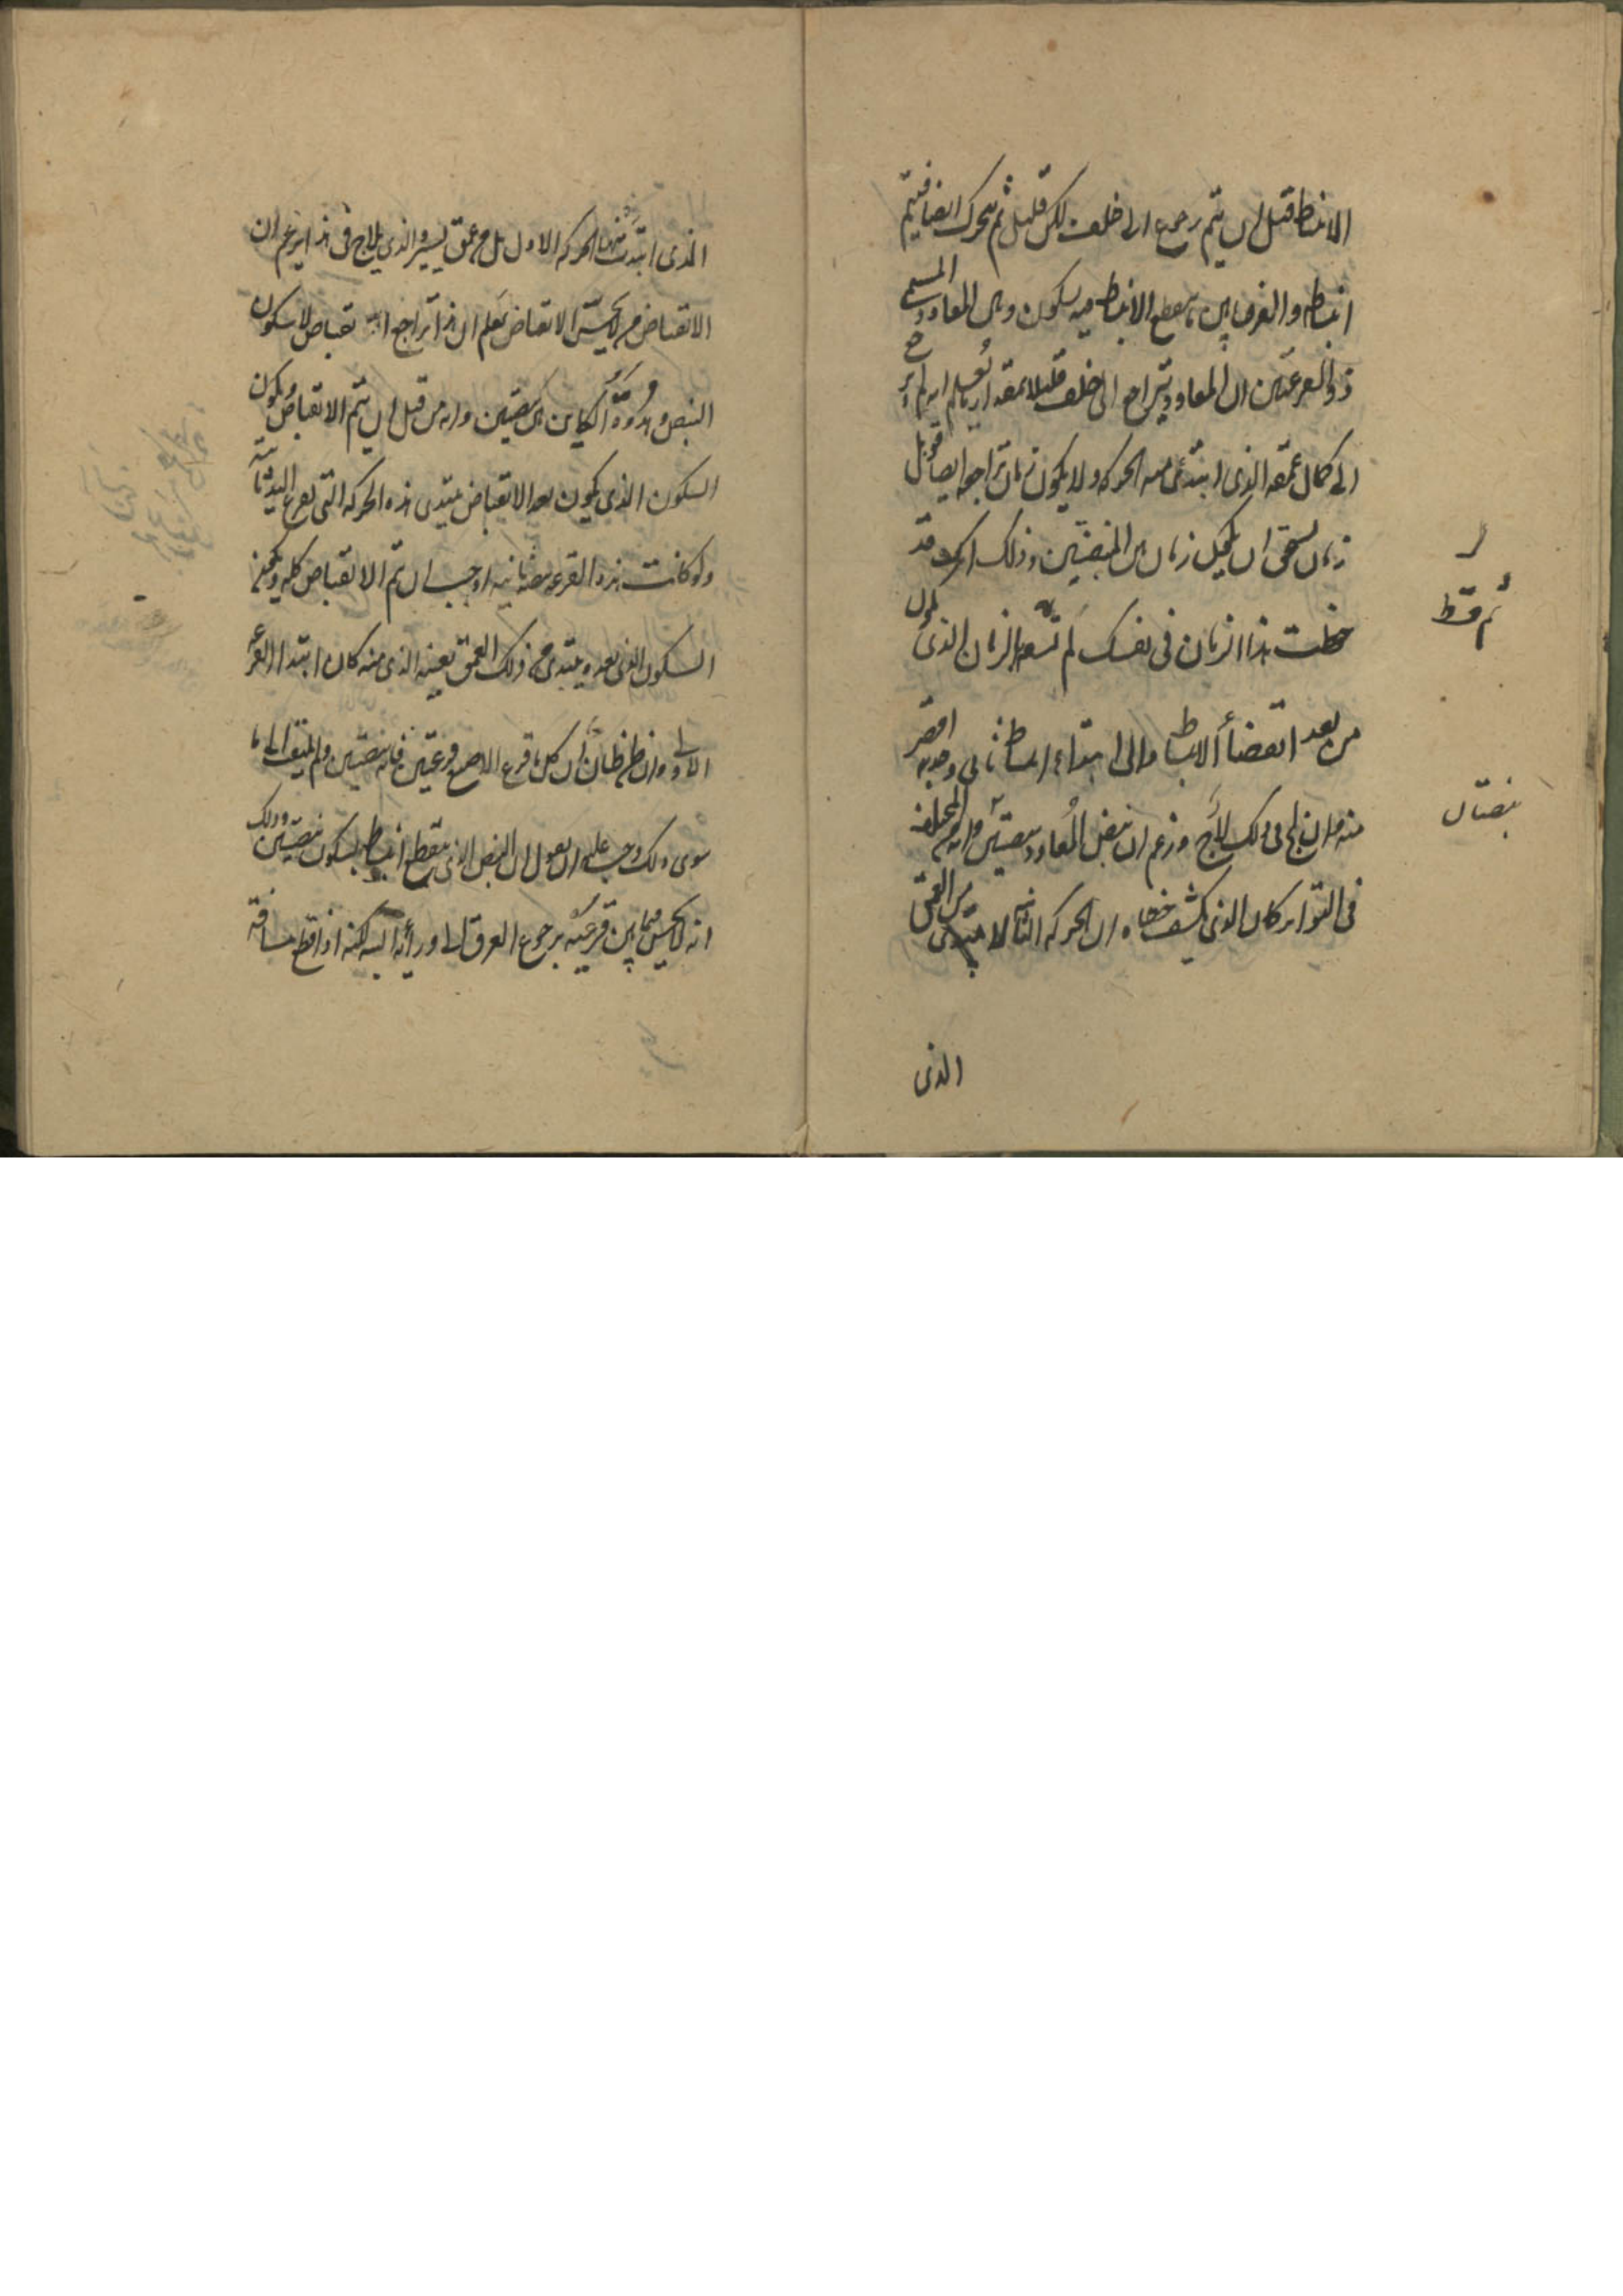 الانبساط قبل ان يتم رجوع الى خلف لكن قليل ثم يتحرك ايضا فيتم
انبساطه والفرق بين ما يقطع الانبساط فيه بسكون وبين المعاود المسمى
ذو القرعتين ان المعاود يتراجع الى خلف قليلا بمقدار ما يعلم انه لم يرجع
الى كمال عمقه الذى ابتدئ منه الحركه ولا يكون زمان تراجعه ايضا قبل
زمان يستحق ان يكون زمان بين النبضتين وذلك انك قد
حفظت هذا الزمان فى نفسك لم تسو الزمان الذى يكون
من بعد انقضاء الانبساط والى ابتداء انبساط ثانى وجدته اقصر
منه وان لج فى ذلك لاج وزعم ان نبض المعاود نبضتين وانه من المختلف
فى التواتر كان الذى يكشف خطاه ان الحركه الثانيه لا تبتدى من العمق
الذى
ثم قط
نبضتان
الذى ابتدئت منها الحركه الاول بل من عمق يسير والذى يلاج فى هذا يزعم ان
الانقباض لا يحس الانقباض يعلم ان هذا تراجع انقباض لا سكون
النبض وهدوه الكاين بين نبضتين وانه من قبل ان يتم الانقباض ويكون
السكون الذى يكون بعد الانقباض يبتدى هذه الحركه التى تقرع اليد ثانيه
ولو كانت هذه القرعه نبضه ثانيه لوجب ان يتم الانقباض كله
السكون الذى بعده يبتدى من ذلك العمق بعينه الذى منه كان ابتداء القرعه
الاولى وان ظن ظان ان كل ما قرع الاصبع قرعتين فانه نبضتين ولم يتفقد الى ما
سوى ذلك وجب عليه ان يقول ان النبض الذى ينقطع انبساطه بسكون نبضتين وذلك
انه لا يحس فيما بين قرعتيه برجوع العرق الى ورائه البته لكنه اذا قطع مسافة